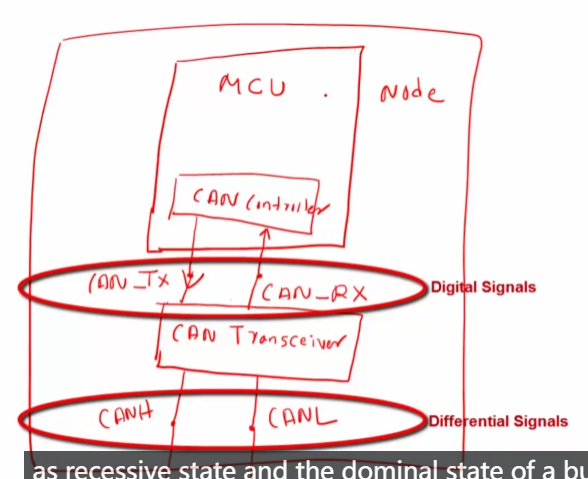 MCU
Node
CAN Controller
CAN_Tx
CAN_RX
Digital Signals
CAN Transceiver
CANH
CANL
Differential Signals
as recessive state and the dominal state of a bu